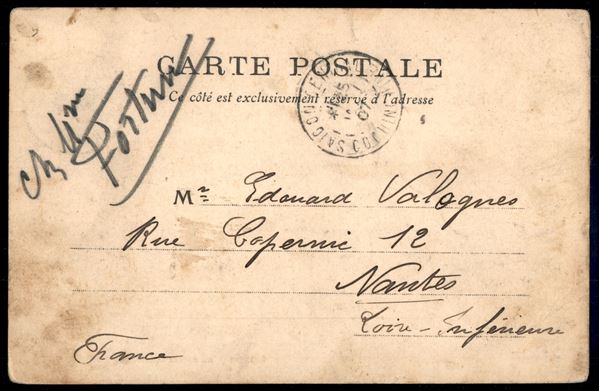 CARTE POSTALE
Ce côté est exclusivement réservé à l'adresse
SAIGON COCHINCHINE
07
ch Mme
Fortun
Mr Edouard Valognes
Rue Copernic 12
Nantes
Loire-Inférieure
France